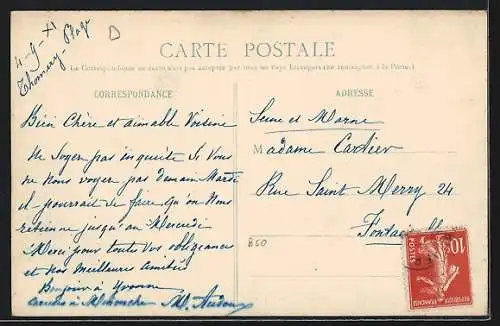 4-9-XI
Thomery-Plage
D
CARTE POSTALE
La Correspondance au recto n'est pas acceptée par tous les Pays Etrangers (Se renseigner à la Poste.)
CORRESPONDANCE
ADRESSE
Bien Chère et aimable Voisine
Ne Soyez pas inquiète Si Vous
ne Nous voyez pas demain Mardi
il pourrait se faire qu'on Nous
retienne jusqu'au Mercredi
Merci pour toutes Vos obligeances
et Nos Meilleures Amitiés
Bonjour à Yvonne
Seine et Marne
Madame Cartier
Rue Saint Merry 24
B50
10c
REPUBLIQUE FRANÇAISE